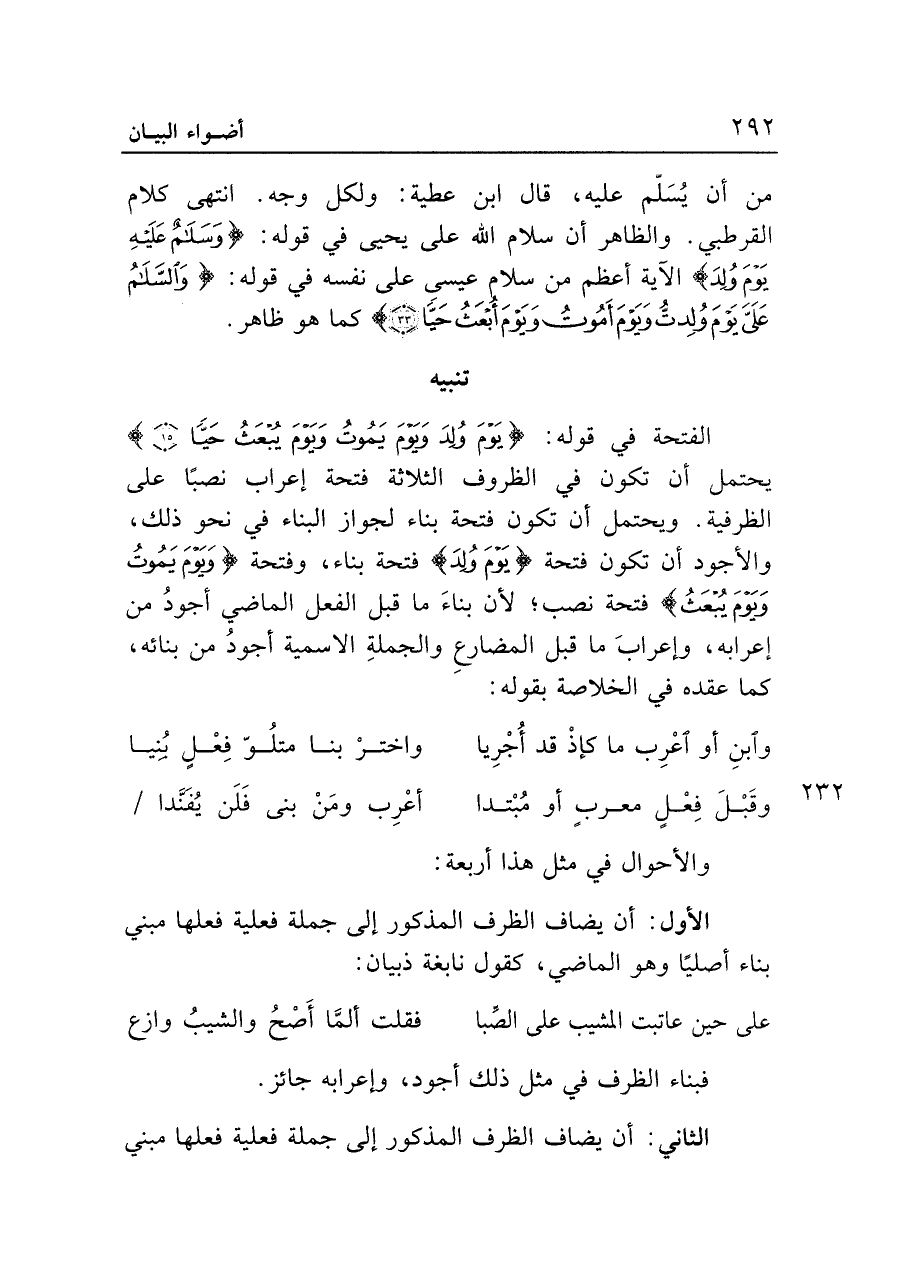 ٢٩٢ أضواء البيان
من أن يُسَلّم عليه، قال ابن عطية: ولكل وجه. انتهى كلام
القرطبي. والظاهر أن سلام الله على يحيى في قوله: ﴿وَسَلَٰمٌ عَلَيْهِ
يَوْمَ وُلِدَ﴾ الآية أعظم من سلام عيسى على نفسه في قوله: ﴿وَٱلسَّلَٰمُ
عَلَىَّ يَوْمَ وُلِدتُّ وَيَوْمَ أَمُوتُ وَيَوْمَ أُبْعَثُ حَيًّا ٣٣﴾ كما هو ظاهر.
تنبيه
الفتحة في قوله: ﴿يَوْمَ وُلِدَ وَيَوْمَ يَمُوتُ وَيَوْمَ يُبْعَثُ حَيًّا ١٥﴾
يحتمل أن تكون في الظروف الثلاثة فتحة إعراب نصبًا على
الظرفية. ويحتمل أن تكون فتحة بناء لجواز البناء في نحو ذلك،
والأجود أن تكون فتحة ﴿يَوْمَ وُلِدَ﴾ فتحة بناء، وفتحة ﴿وَيَوْمَ يَمُوتُ
وَيَوْمَ يُبْعَثُ﴾ فتحة نصب؛ لأن بناءَ ما قبل الفعل الماضي أجودُ من
إعرابه، وإعرابَ ما قبل المضارعِ والجملةِ الاسمية أجودُ من بنائه،
كما عقده في الخلاصة بقوله:
وٱبنِ أو ٱعْرِب ما كإذْ قد أُجْرِيا واختــرْ بنــا متلُــوّ فِعْــلٍ بُنِيــا
٢٣٢ وقَبْــلَ فِعْــلٍ معــربٍ أو مُبْتــدا أعْرِب ومَنْ بنى فَلَن يُفَنَّدا /
والأحوال في مثل هذا أربعة:
الأول: أن يضاف الظرف المذكور إلى جملة فعلية فعلها مبني
بناء أصليًا وهو الماضي، كقول نابغة ذبيان:
على حين عاتبت المشيب على الصِّبا فقلت ألمَّا أَصْحُ والشيبُ وازع
فبناء الظرف في مثل ذلك أجود، وإعرابه جائز.
الثاني: أن يضاف الظرف المذكور إلى جملة فعلية فعلها مبني